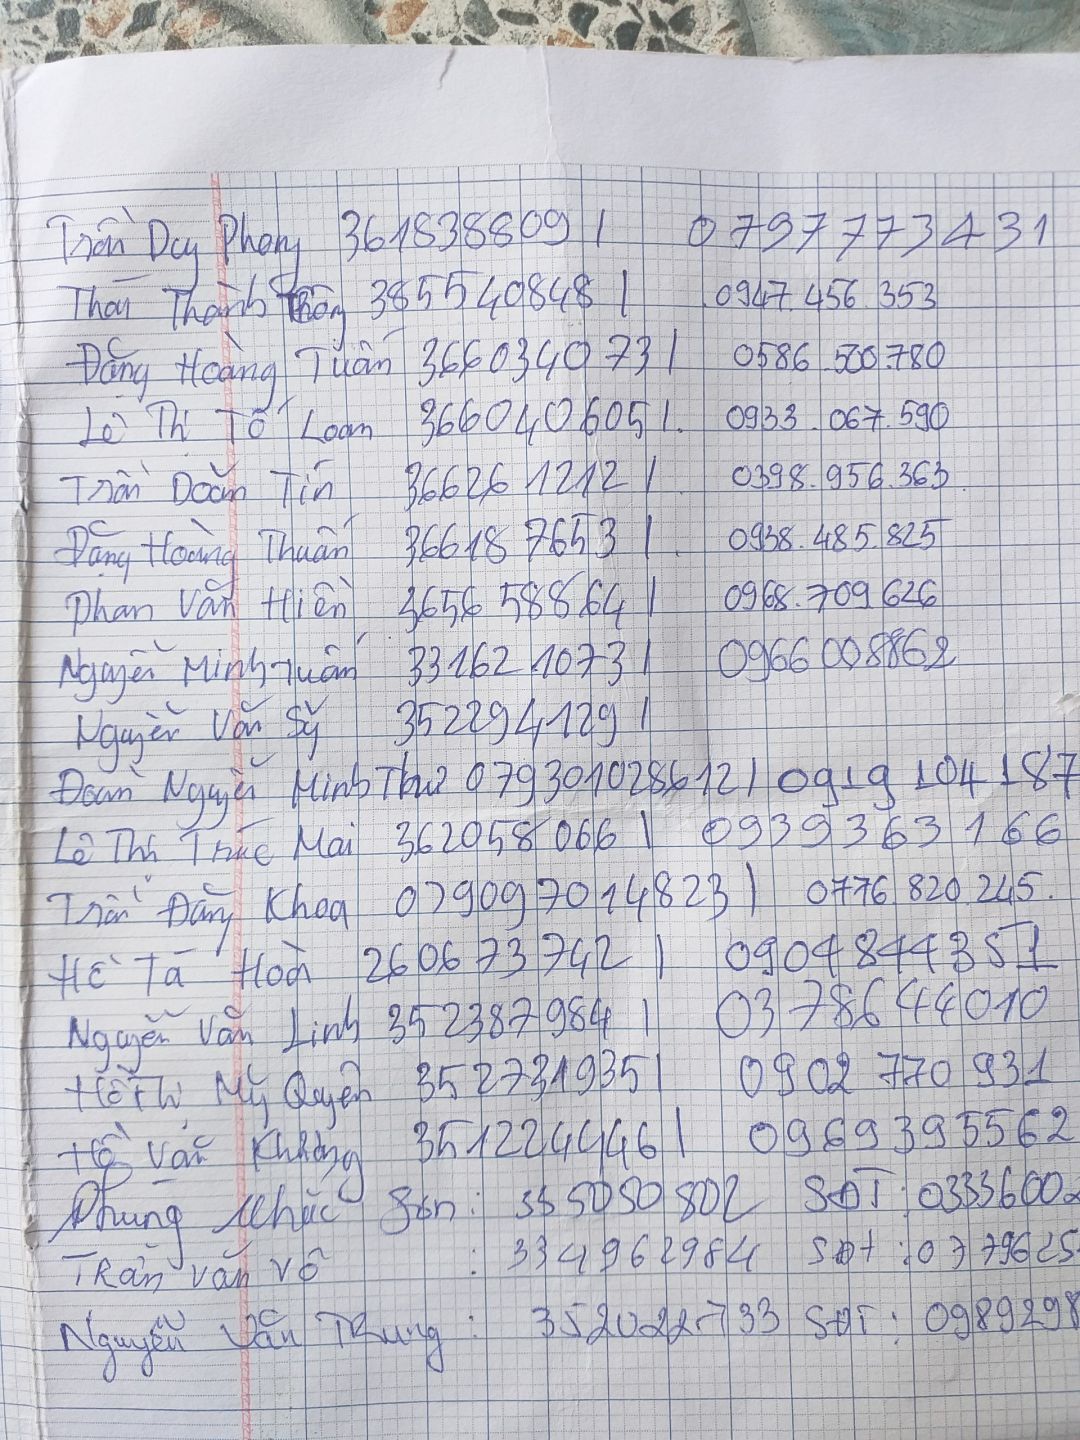 Trần Duy Phong 361838809 | 0797773431
Thái Thành Thông 385540848 | 0947.456.353
Đặng Hoàng Tuấn 366034073 | 0586.500.780
Lê Thị Tố Loan 366040605 | 0933.067.590
Trần Doãn Tín 366261212 | 0398.956.363
Đặng Hoàng Thuấn 366187653 | 0938.485.825
Phan Văn Hiền 365658864 | 0968.709626
Nguyễn Minh Tuấn 331621073 | 0966008862
Nguyễn Văn Sỹ 352294129 |
Đoàn Nguyễn Minh Thư 079301028612 | 0919 104 187
Lê Thị Trúc Mai 362058066 | 0939363166
Trần Đăng Khoa 079097014823 | 0776.820.245.
Hồ Tá Hoà 260673742 | 0904844351
Nguyễn Văn Linh 352387984 | 0378644010
Hồ Thị Mỹ Quyên 352731935 | 0902 770 931
Hồ Văn Khương 351224446 | 0969395562
Phùng Khắc Sơn : 335050802 SĐT : 0333600
Trần Văn Võ : 334962984 SĐT : 0779625
Nguyễn Văn Trung : 352022733 SĐT : 0989298